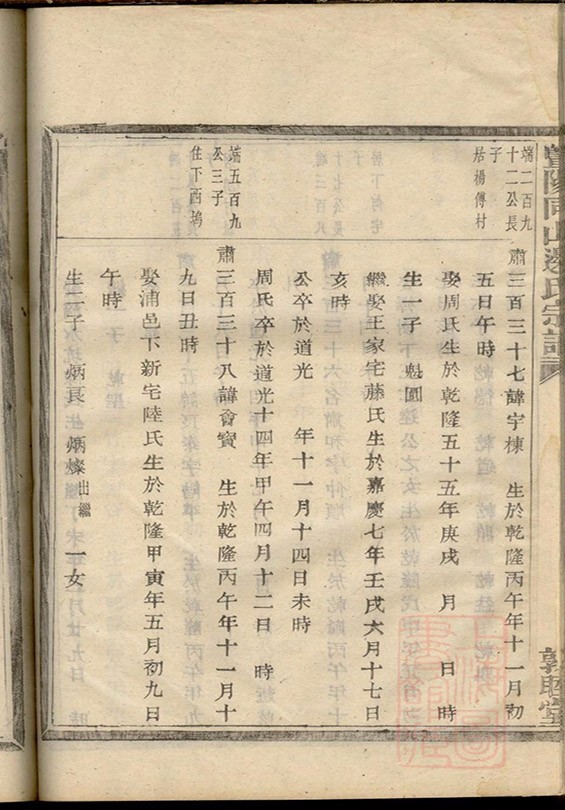 暨陽同山邊氏宗譜
敦睦堂
端二百九
十二公長
子
居楊傅村
肅三百三十七諱宇棟 生於乾隆丙午年十一月初
五日午時
娶周氏生於乾隆五十五年庚戌 月 日 時
生一子 魁圓
繼娶王家宅藤氏生於嘉慶七年壬戌六月十七日
亥時
公卒於道光 年十一月十四日未時
周氏卒於道光十四年甲午四月十二日 時
端五百九
公三子
住下西塢
肅三百三十八諱會寶 生於乾隆丙午年十一月十
九日丑時
娶浦邑下新宅陸氏生於乾隆甲寅年五月初九日
午時
生二子 炳長 炳燦出繼 一女